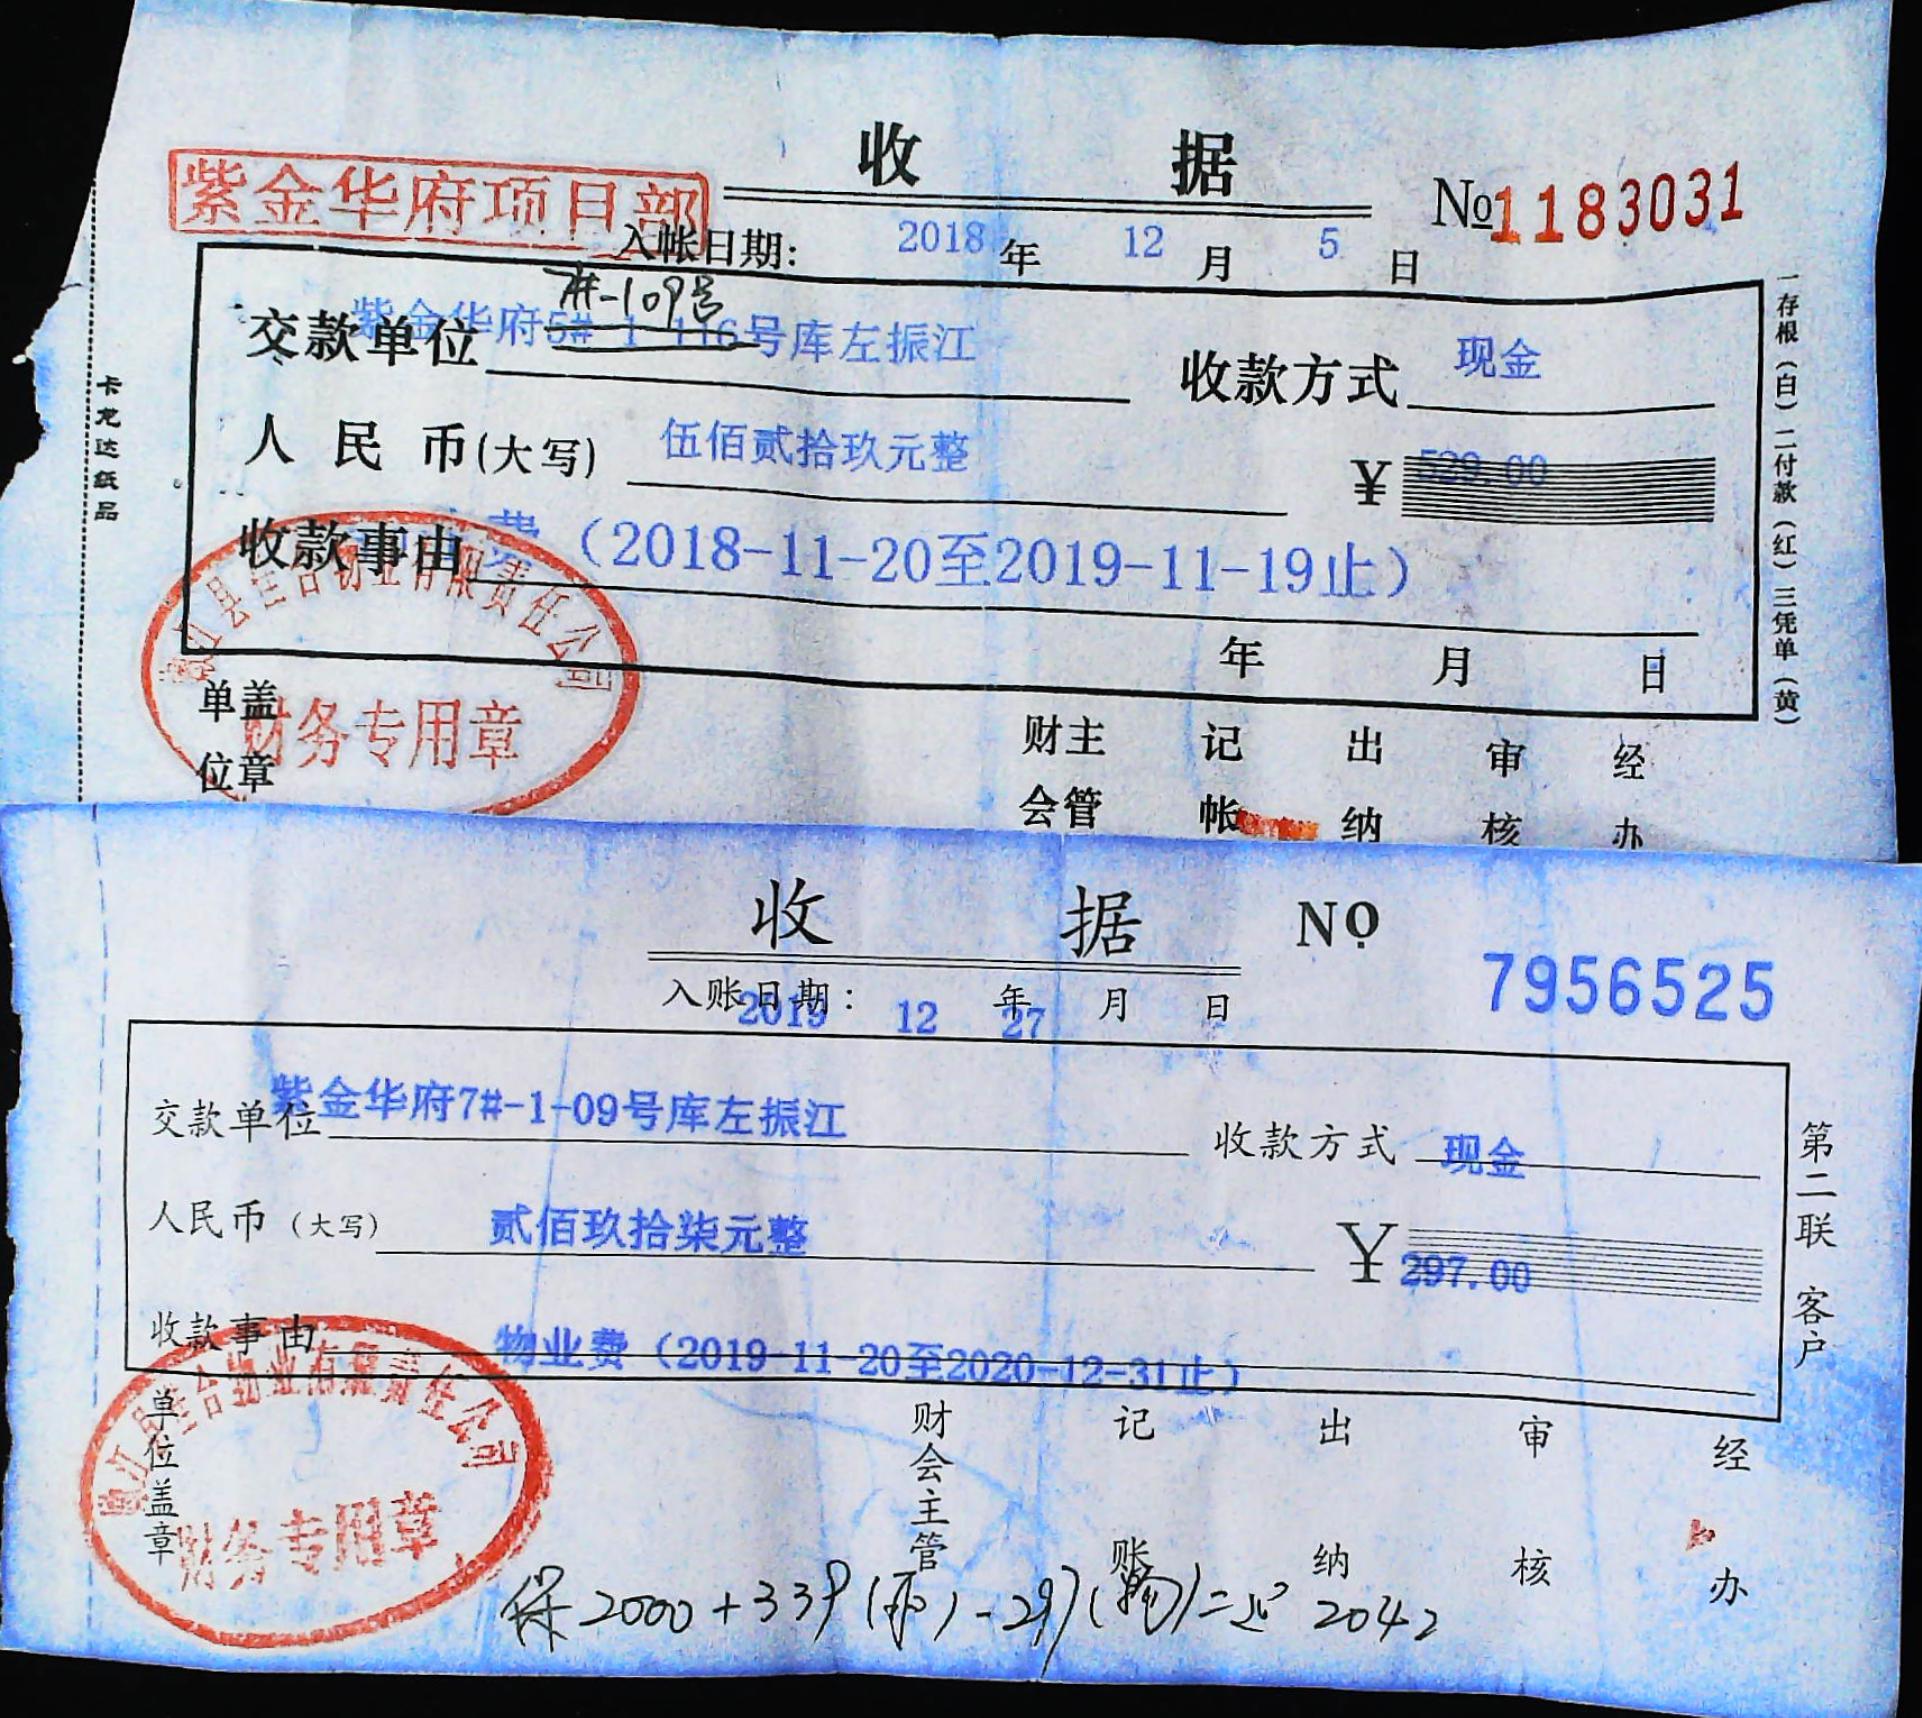 收 据
No 1183031
紫金华府项目部
入帐日期: 2018 年 12 月 5 日
7#-109号
交款单位 紫金华府5#-1-116号库左振江 收款方式 现金
人民币(大写) 伍佰贰拾玖元整 ¥ 529.00
收款事由 费（2018-11-20至2019-11-19止）
年 月 日
县佳合物业有限责任公司
财务专用章
单位盖章
财会主管 记帐 出纳 审核 经办
一存根（白）二付款（红）三凭单（黄）
卡龙达纸品
收 据 NO
7956525
入账日期: 2019 年 12 月 27 日
交款单位 紫金华府7#-1-09号库左振江 收款方式 现金
人民币（大写） 贰佰玖拾柒元整 ¥ 297.00
收款事由 物业费（2019-11-20至2020-12-31止）
第二联 客户
县佳合物业有限责任公司
财务专用章
单位盖章
财会主管 记账 出纳 审核 经办
保2000+339( )-297(物)=退 2042